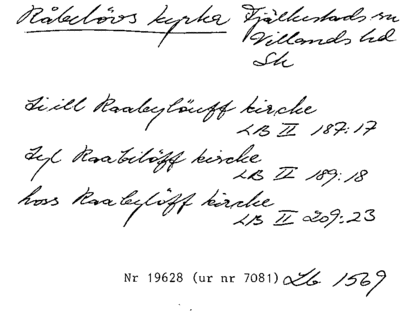 Råbelövs kyrka Fjälkestads sn
Villands hd
Sk
Tiill Raabylöuff kircke
LB II 187:17
Tyl Raabilöff kircke
LB II 189:18
hoss Raabylöff kircke
LB II 209:23
Nr 19628 (ur nr 7081) Lb 1569